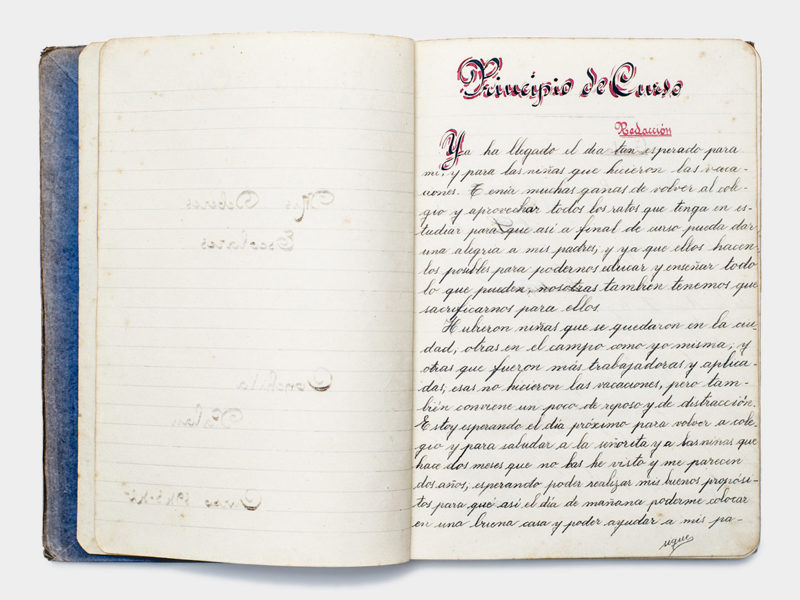 Mis Deberes
Escolares
Conchita
Curso
Principio de Curso
Redacción
Ya ha llegado el dia tan esperado para
mi, y para las niñas que hicieron las vaca-
ciones. Tenia muchas ganas de volver al cole-
gio y aprovechar todos los ratos que tenga en es-
tudiar para que asi a final de curso pueda dar
una alegria a mis padres, y ya que ellos hacen
los posibles para podernos educar y enseñar todo
lo que pueden, nosotras tambien tenemos que
sacrificarnos para ellos.
Hubieron niñas que se quedaron en la ciu-
dad, otras en el campo como yo misma; y
otras que fueron más trabajadoras y aplica-
das, esas no hicieron las vacaciones, pero tam-
bién conviene un poco de reposo y de distracción.
Estoy esperando el día próximo para volver a cole-
gio y para saludar a la señorita y a las niñas que
hace dos meses que no las he visto y me parecen
dos años, esperando poder realizar mis buenos propósi-
tos para qué asi el día de mañana poderme colocar
en una buena casa y poder ayudar a mis pa-
sigue